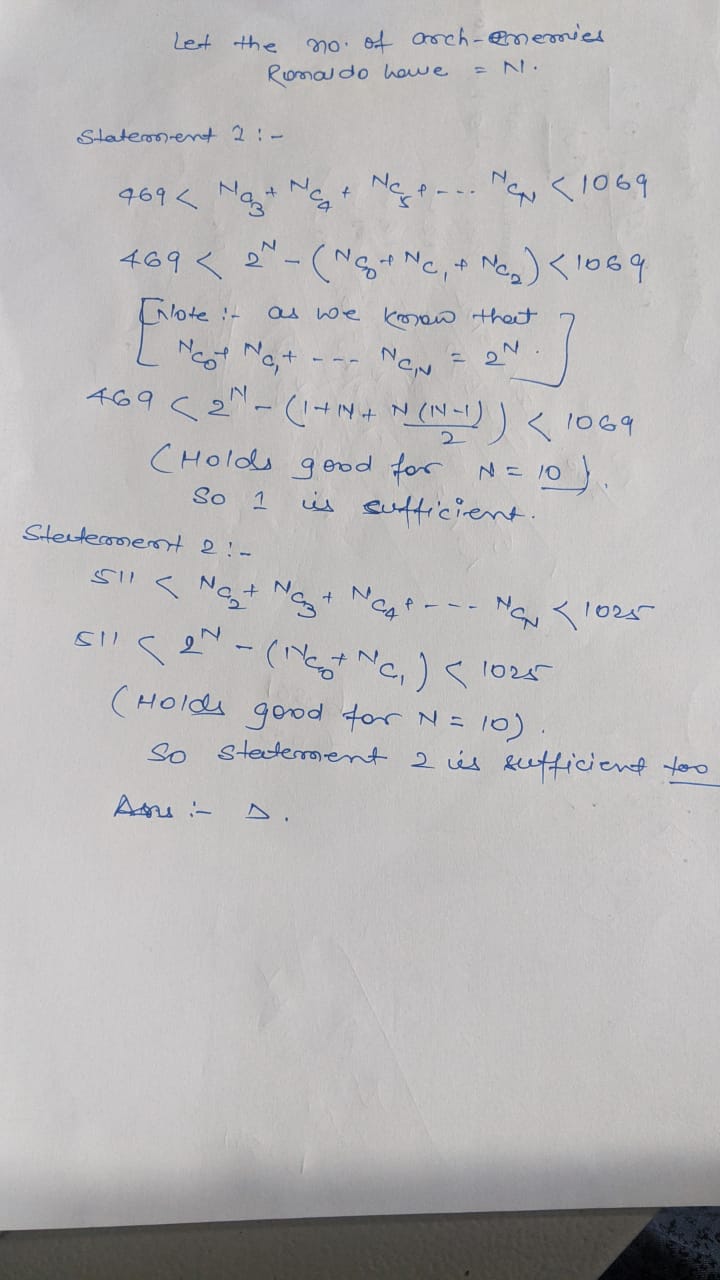 Let the no. of arch-enemies
Ronaldo have = N.
Statement 1 :-
469 < NC3 + NC4 + NC5 + --- NCN < 1069
469 < 2^N - (NC0 + NC1 + NC2) < 1069
[Note :- as we know that
NC0 + NC1 + --- NCN = 2^N.]
469 < 2^N - (1+N+ N(N-1)/2) < 1069
(Holds good for N = 10).
So 1 is sufficient.
Statement 2 :-
511 < NC2 + NC3 + NC4 + --- NCN < 1025
511 < 2^N - (NC0 + NC1) < 1025
(Holds good for N = 10).
So statement 2 is sufficient too
Ans :- D.